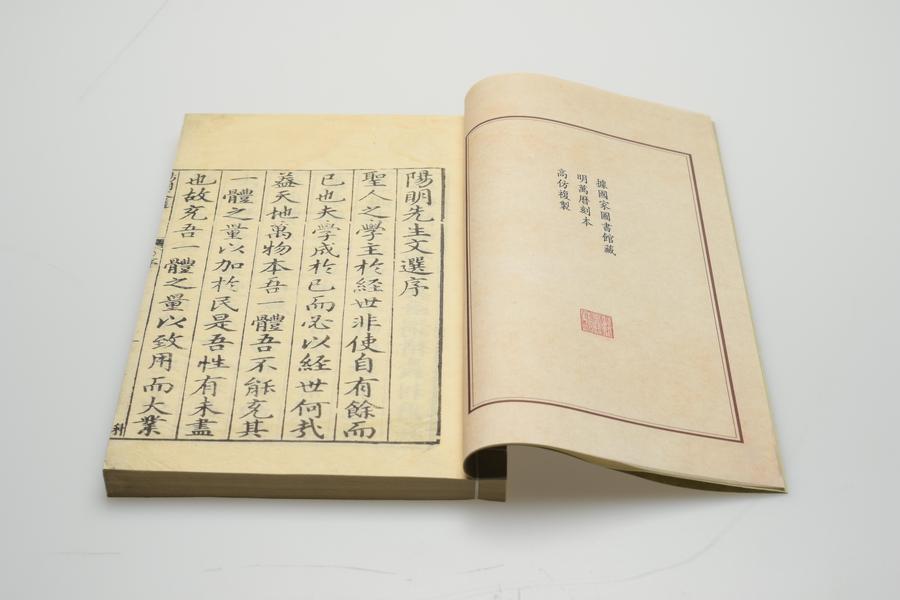 據國家圖書館藏
明萬曆刻本
高仿複製
陽明先生文選序
聖人之學主於経世非使自有餘而
已也夫學成於已而必以経世何㢤
葢天地萬物本吾一體吾不能充其
一體之量以加於民是吾性有未盡
也故充吾一體之量以致用而大業